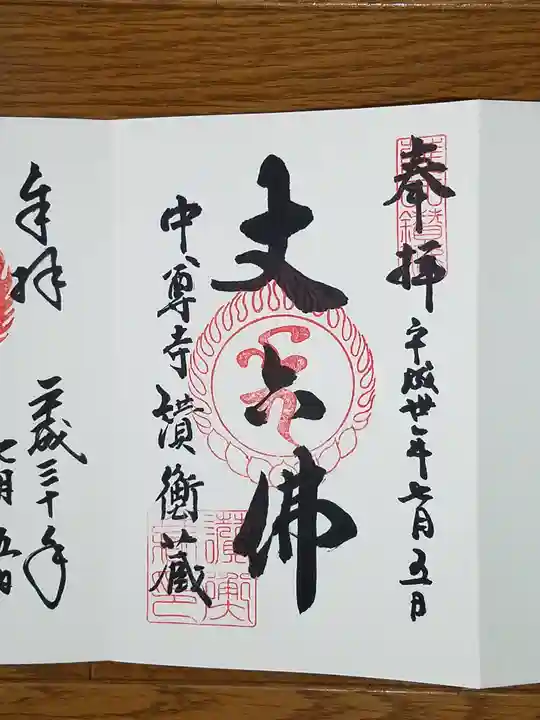 奉拝
平成卅年七月五日
丈六佛
中尊寺讃衡蔵
奉拝
平成三十年
七月五日